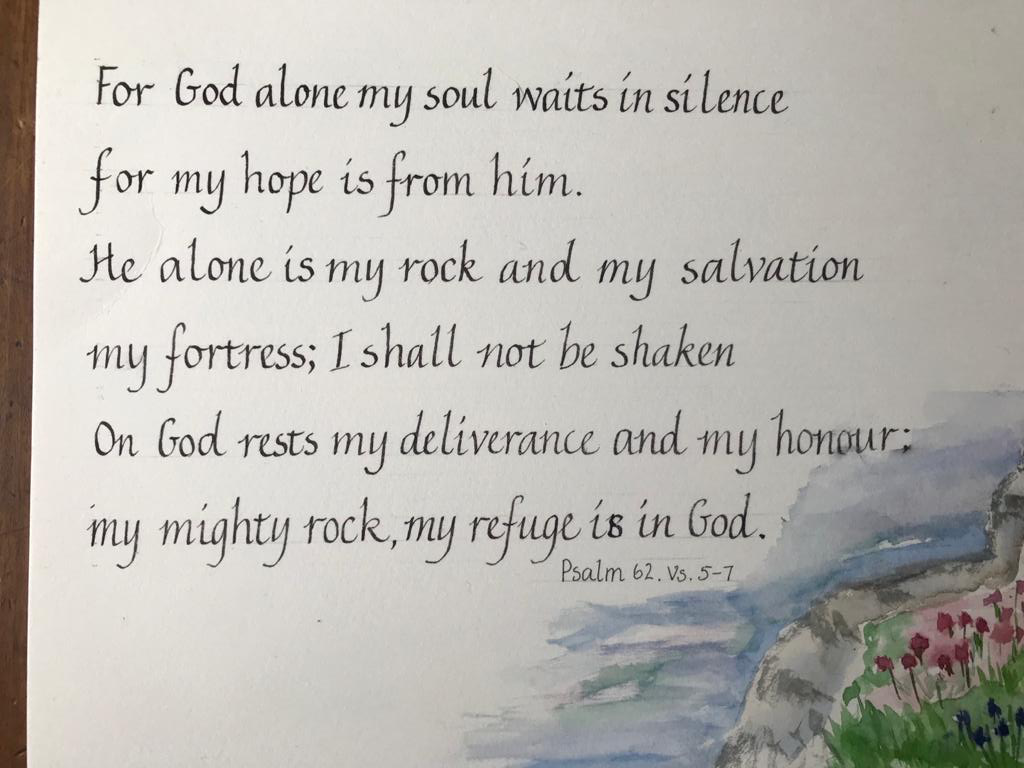 For God alone my soul waits in silence
for my hope is from him.
He alone is my rock and my salvation
my fortress; I shall not be shaken
On God rests my deliverance and my honour:
my mighty rock, my refuge is in God.
Psalm 62. Vs. 5-7